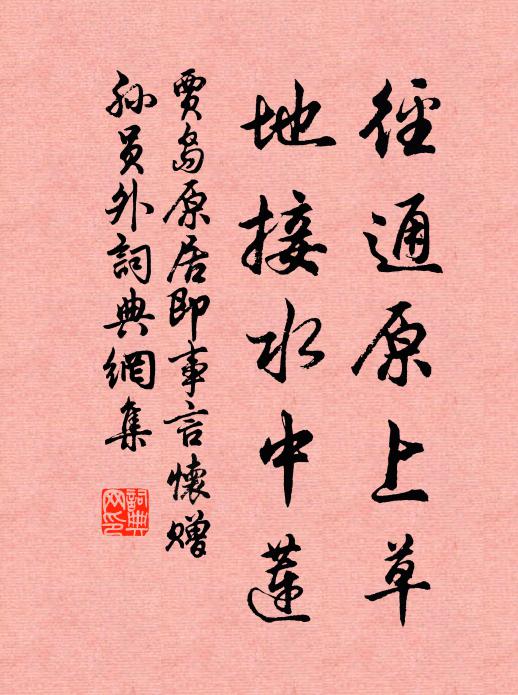 徑通原上草
地接水中蓮
賈島原居即事言懷贈
孫員外詞典網集
詞典網印